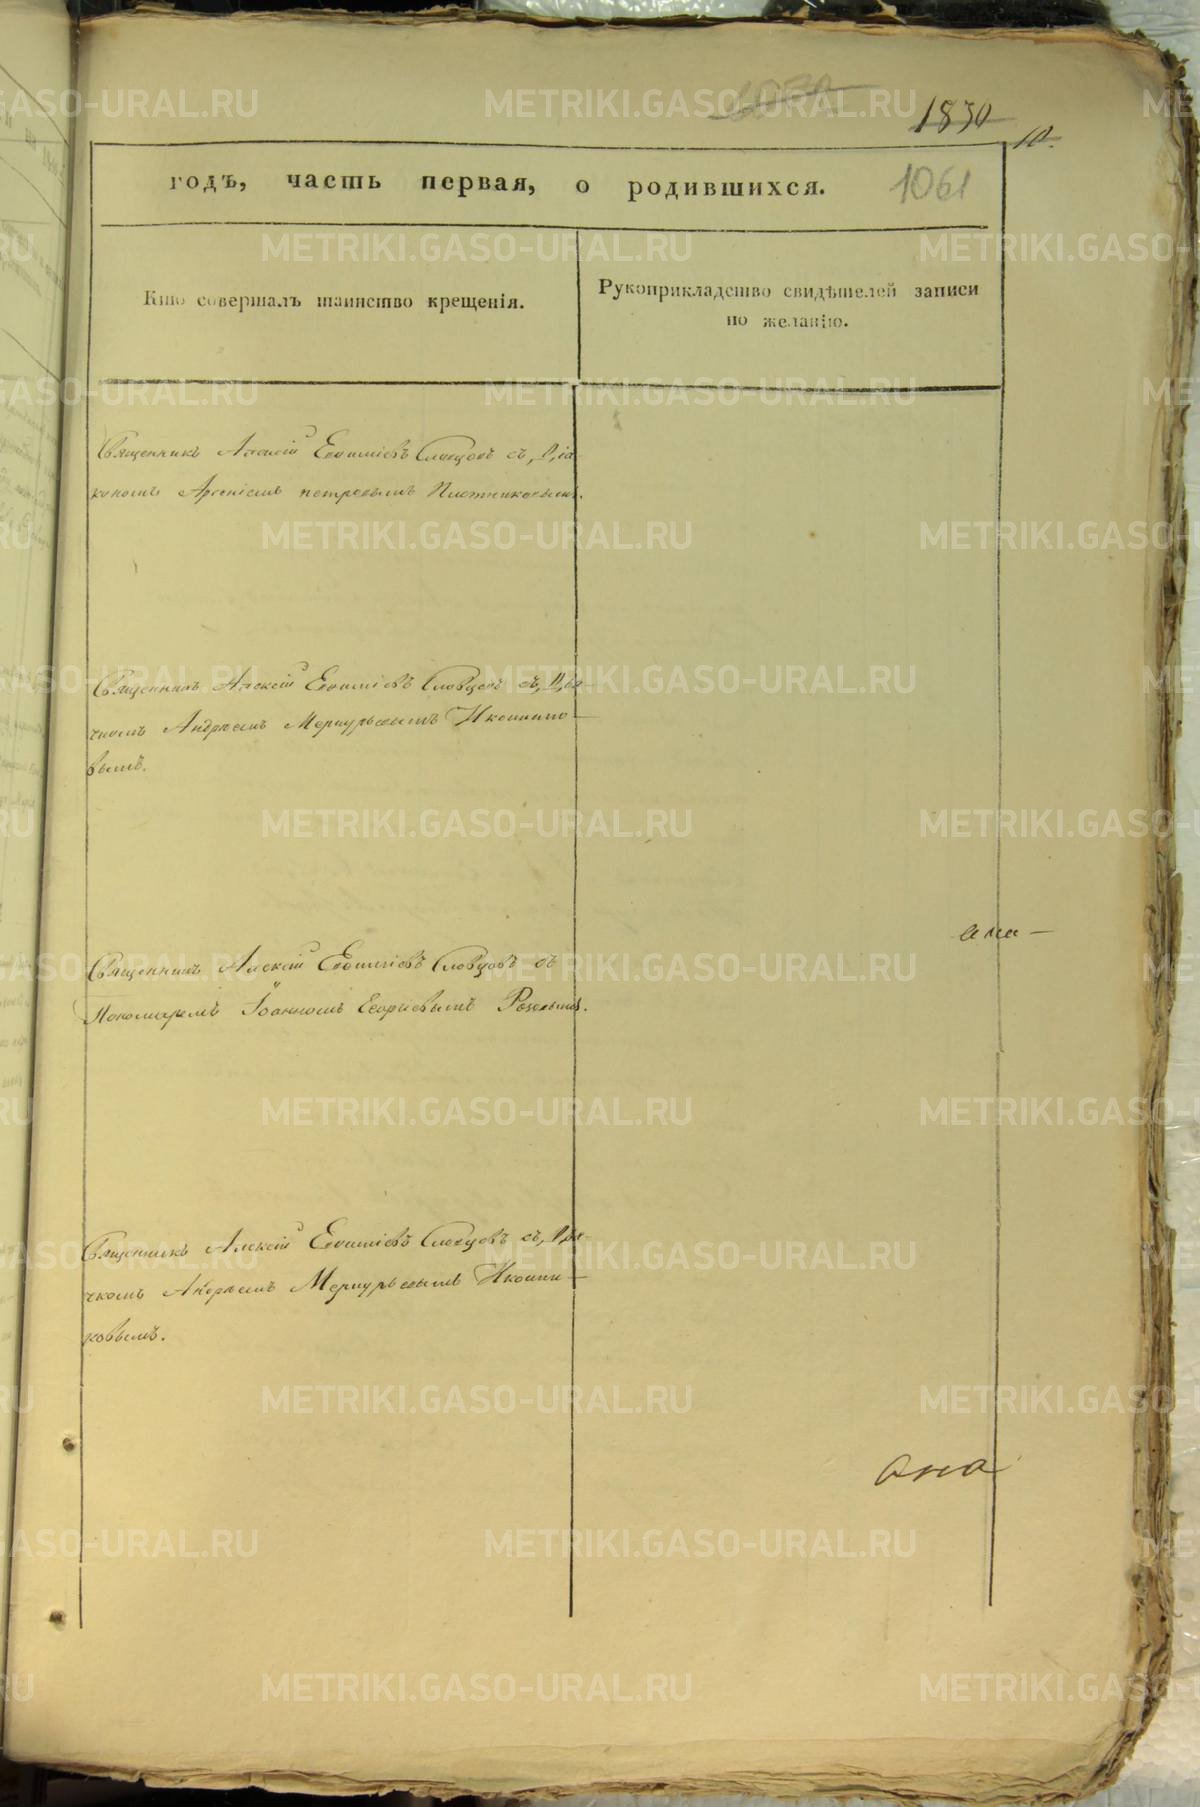 1830
10.
годъ, часть первая, о родившихся. 1061
Кто совершалъ таинство крещенія.
Рукоприкладство свидѣтелей записи
по желанію.
Священникъ Алексій Евѳиміевъ Словцовъ съ Діа
кономъ Арсеніемъ петровымъ Плотниковымъ.
Священникъ Алексій Евѳиміевъ Словцовъ съ Дья-
чкомъ Андреемъ Меркурьевымъ
вымъ.
ана-
Священникъ Алексій Евѳиміевъ Словцовъ съ
Пономаремъ Іоанномъ Егоріевымъ
Священникъ Алексій Евѳиміевъ Словцовъ съ Дья-
чкомъ Андреемъ Меркурьевымъ Икони-
ковымъ.
ана
METRIKI.GASO-URAL.RU